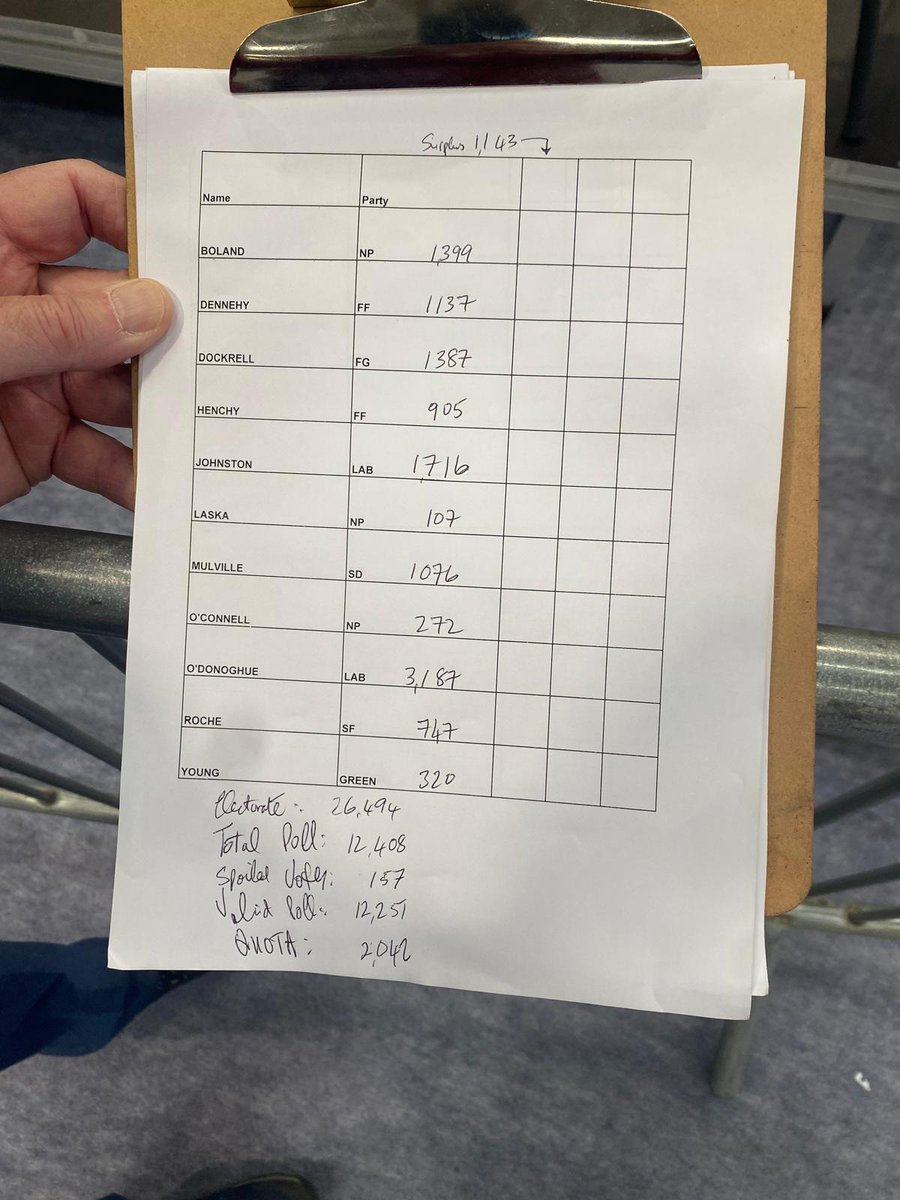 Surplus 1,143
Name Party
BOLAND NP 1,399
DENNEHY FF 1137
DOCKRELL FG 1387
HENCHY FF 905
JOHNSTON LAB 1,716
LASKA NP 107
MULVILLE SD 1076
O'CONNELL NP 272
O'DONOGHUE LAB 3,187
ROCHE SF 747
YOUNG GREEN 320
Electorate: 26,494
Total Poll: 12,408
Spoiled Votes: 157
Valid Poll: 12,251
QUOTA: 2,042